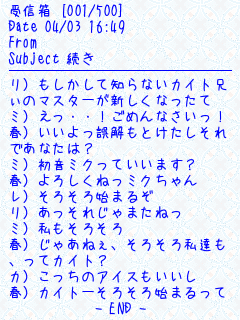 受信箱 [001/500]
Date 04/03 16:49
From
Subject 続き
リ) もしかして知らないカイト兄
ぃのマスターが新しくなったて
ミ) えっ・・！ごめんなさいっ！
春) いいよっ誤解もとけたしそれ
であなたは？
ミ) 初音ミクっていいます？
春) よろしくねっミクちゃん
レ) そろそろ始まるぞ
リ) あっそれじゃまたねっ
ミ) 私もそろそろ
春) じゃあねぇ、そろそろ私達も
、ってカイト？
カ) こっちのアイスもいいし
春) カイトーそろそろ始まるって
- END -